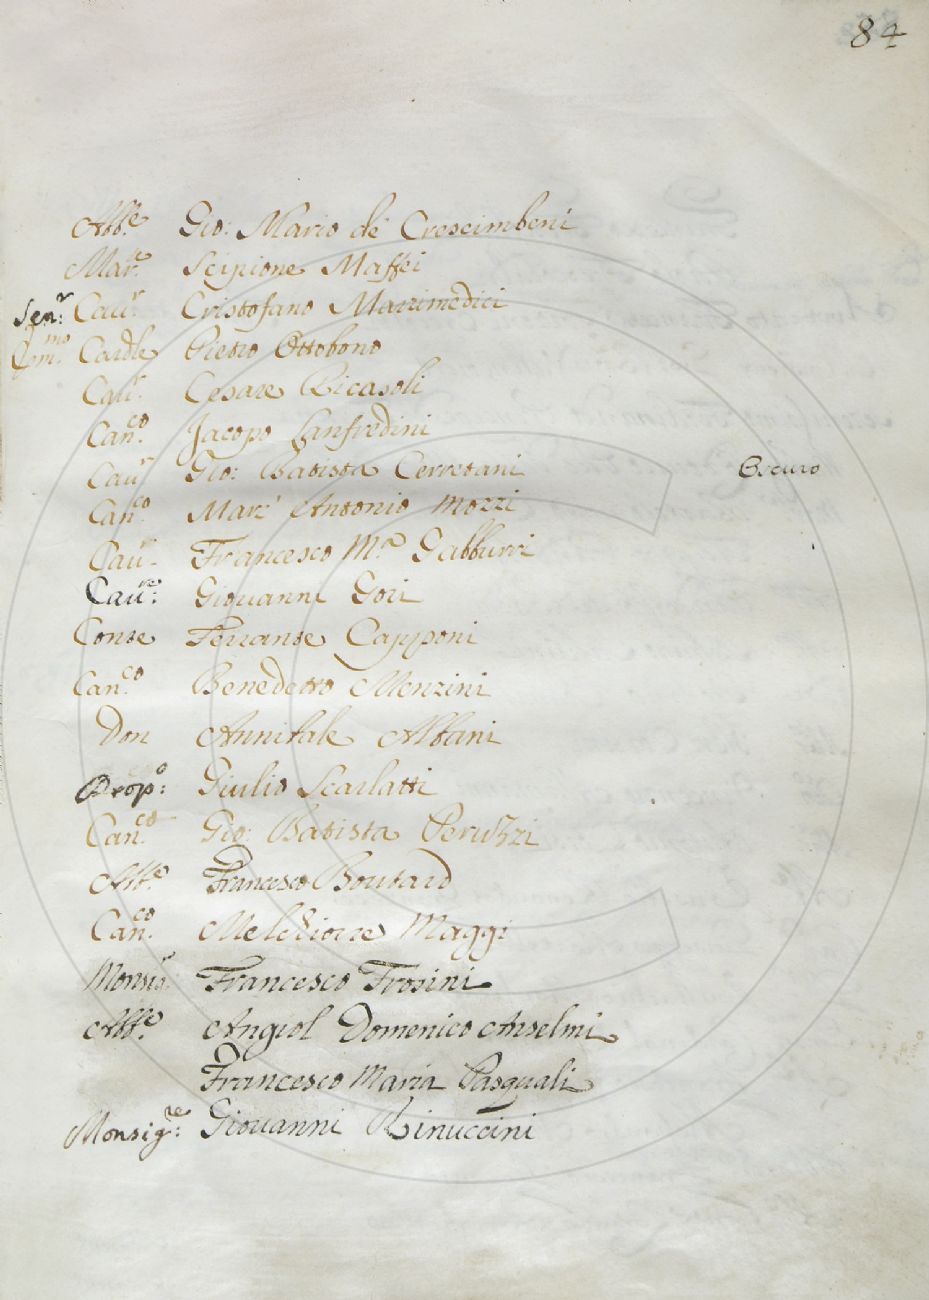 84
Abb.e Gio: Mario de' Crescimbeni
Mar.e Scipione Maffei
Sen:r Cau.r Cristofano Marzimedici
Em.mo Cardle Pietro Ottobono
Cau.r Cesare Ricasoli
Can.co Jacopo Lanfredini
Cau.r Gio: Batista Cerretani Oscuro
Can.co Marc' Antonio Mozzi
Cau.r Francesco M.a Gabburri
Cau.re: Giouanni Gori
Conte Ferrante Capponi
Can.co Benedetto Menzini
Don Annibale Albani
Prop.o: Giulio Scarlatti
Can.co Gio: Batista Peruzzi
Abb.e Francesco Boutard
Can.co Melchiorre Maggi
Monsig.r Francesco Frosini
Abb.e Angiol Domenico Anselmi
Francesco Maria Pasquali
Monsig.re: Giouanni Rinuccini